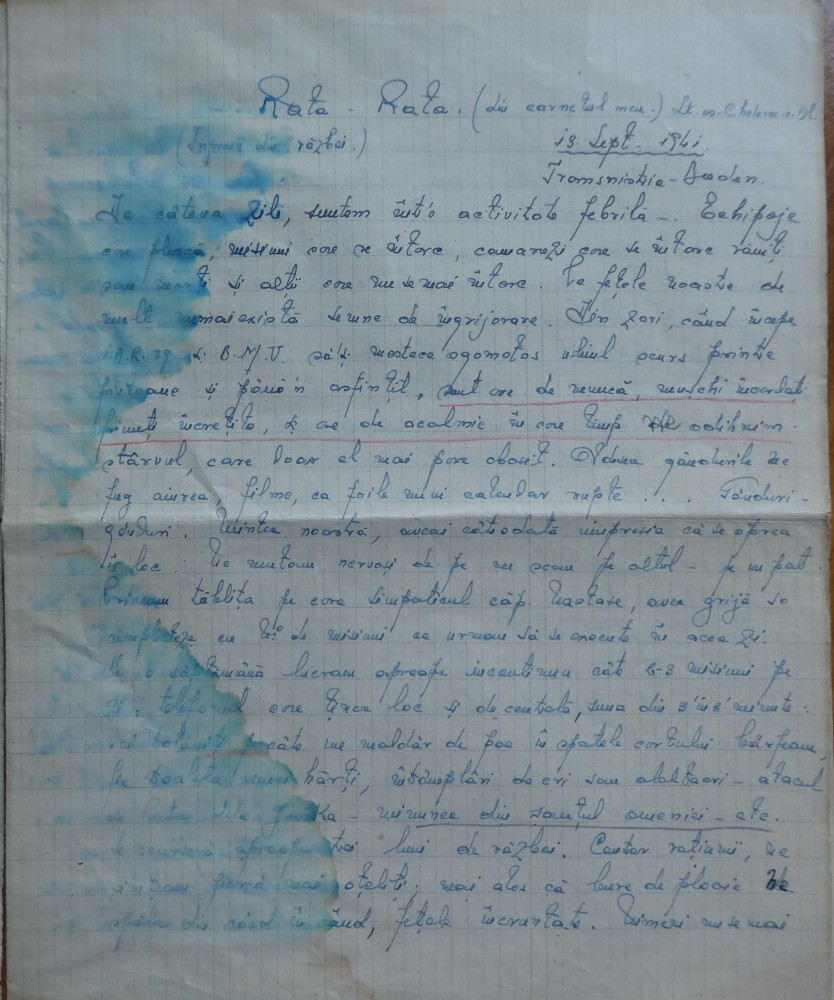 Rata - Rata. (din carnetul meu.) Lt. av.
(Impresii din război.) 13. Sept. 1941.
Transnistria - Baden.
De câteva zile, suntem într'o activitate febrilă -. Echipaje
care pleacă, misiuni care se întorc, camarazi care se întorc răniți
sau morți și alții care nu se mai întorc. Pe fețele noastre de
mult nu mai există semne de îngrijorare. Din zori, când începe
I.A.R. 39 și B.M.V. să'și mestece sgomotos uleiul scurs printre
pistoane și până'n asfințit, sunt ore de muncă, mușchi încordați
frunți încrețite, și ore de acalmie în care timp ne odihnim
stârvul, care doar el mai pare obosit. Aduna gândurile ne
fug aiurea, filme, ca foile unui calendar rupte ... Gânduri -
gânduri. Mintea noastră, aveai câteodată impresia că se oprea
în loc. Ne mutam nervoși de pe un scaun pe altul - pe un pat.
Priveam tăblița pe care simpaticul căp. Nastase, avea grijă so
completeze cu Nº de misiuni ce urmau să se execute în acea zi.
De o săptămână lucram aproape incontinuu câte 2-3 misiuni pe
zi; telefonul care ținea loc și de centrală, suna din 5 în 5 minute:
ici pe câte un maldăr de pae în spatele cortului bârfeam,
pe unei hărți, întâmplări de eri sau alaltăeri - atacul
cu Rata dela - minunea din șanțul omeniei - etc.
aproape trei luni de război. Contar rațiunii, ne
simțeam parcă mai oțeliți; mai ales că bure de ploaie ne
spăla din când în când, fețele încruntate. Nimeni nu se mai